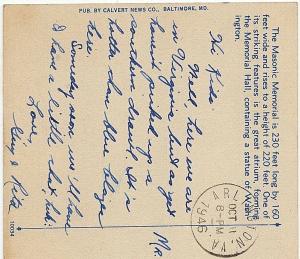 PUB. BY CALVERT NEWS CO., BALTIMORE, MD.
The Masonic Memorial is 230 feet long by 160
feet wide and rises to a height of 220 feet. One of
its striking features is the great atrium, forming
the Memorial Hall, containing a statue of Wash-
ington.
Hi Kids
Well here we are
in Virginia but as yet
haven't picked up a
southern drawl. Mr.
here.
Someday soon we'll have
to have a little chat, huh.
Love,
Rita
ARLINGTON, VA.
OCT 11
8-PM
1946
10034